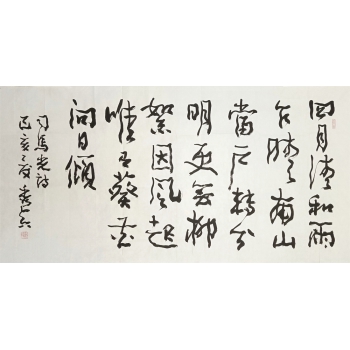 四月清和雨
乍晴南山
當戶轉分
明更無柳
絮因風起
惟有葵花
向日傾
司馬光詩
己亥之